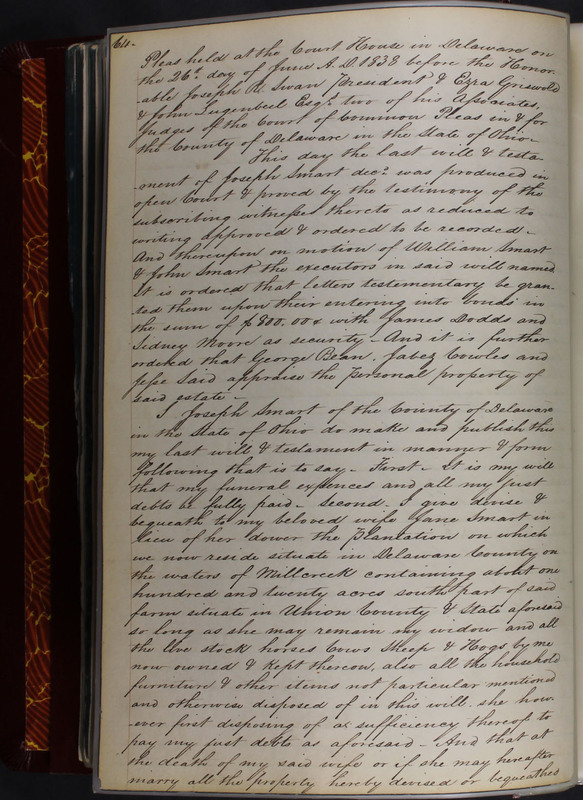 Pleas held at the Court House in Delaware on
the 26th day of June A.D. 1838 before the Honor-
able Joseph R. Swan President & Ezra Griswold
& John Lugenbeel Esqs two of his Associates,
Judges of the Court of Common Pleas in & for
the County of Delaware in the State of Ohio-
This day the last will & testa-
ment of Joseph Smart decd was produced in
open Court & proved by the testimony of the
subscribing witnesses thereto as reduced to
writing approved & ordered to be recorded-
And thereupon on motion of William Smart
& John Smart the executors in said will named
It is ordered that letters testementary be gran-
ted them upon their entering into bonds in
the sum of $800,00 with James Dodds and
Sidney Moore as security- And it is further
ordered that George Bean, Jabez Cowles and
Jesse Said appraise the Personal property of
said estate-
I Joseph Smart of the County of Delaware
in the State of Ohio do make and publish this
my last will & testament in manner & form
following that is to say- First- It is my will
that my funeral expences and all my just
debts be fully paid- Second- I give devise &
bequeath to my beloved wife Jane Smart in
lieu of her dower the Plantation on which
we now reside situate in Delaware County on
the waters of Millcreek containing about one
hundred and twenty acres south part of said
farm situate in Union County & State aforesaid
so long as she may remain my widow and all
the live stock horses Cows Sheep & Hogs by me
now owned & kept thereon, also all the household
furniture & other items not particular mentioned
and otherwise disposed of in this will. she how-
ever first disposing of a sufficiency thereof to
pay my just debts as aforesaid- And that at
the death of my said wife or if she may hereafter
marry all the property hereby devised or bequeathed